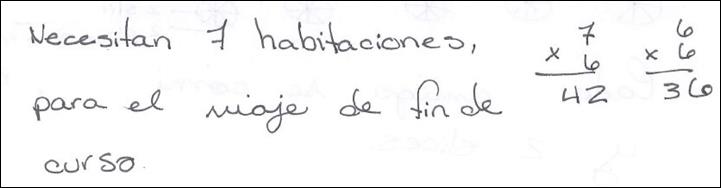 Necesitan 7 habitaciones,
para el viaje de fin de
curso.
7
x 6
42
6
x 6
36